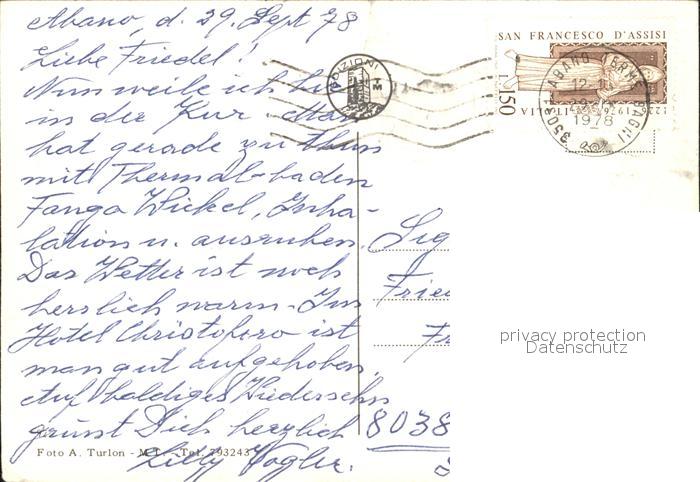 Abano, d. 29. Sept 78
Liebe Friedel!
Nun weile ich hier
in der Kur. Man
hat gerade zu thun
mit Thermal-baden
Fango Wickel, Inha-
lation u. ausruhen.
Das Wetter ist noch
herrlich warm - Im
Hotel Christoforo ist
man gut aufgehoben,
Auf baldiges Wiedersehn
grüsst Dich herzlich
Lilly Vogler.
Foto A. Turlon - M.T. - Tel. 793243
EDIZIONI
SAN FRANCESCO D'ASSISI
L. 150
ITALIA
35031 ABANO TERME BAGNI
1978
Sig
Frie
Fr
8038
privacy protection
Datenschutz